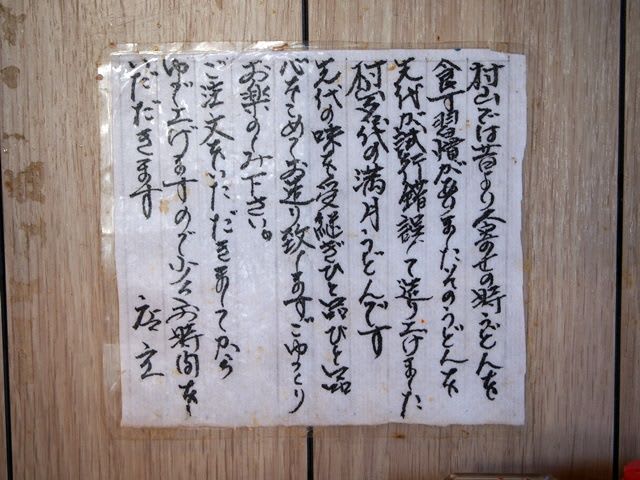 村山では昔より人寄せの時うどんを
食す習慣がありましたそのうどんを
先代が試行錯誤して造り上げました
村山名代の満月うどんです
先代の味を受継ぎひと品ひと品
心をこめてお造り致しますごゆっくり
お楽しみ下さい。
ご注文をいただきましてから
ゆで上げますので少々お時間を
いただきます
店主